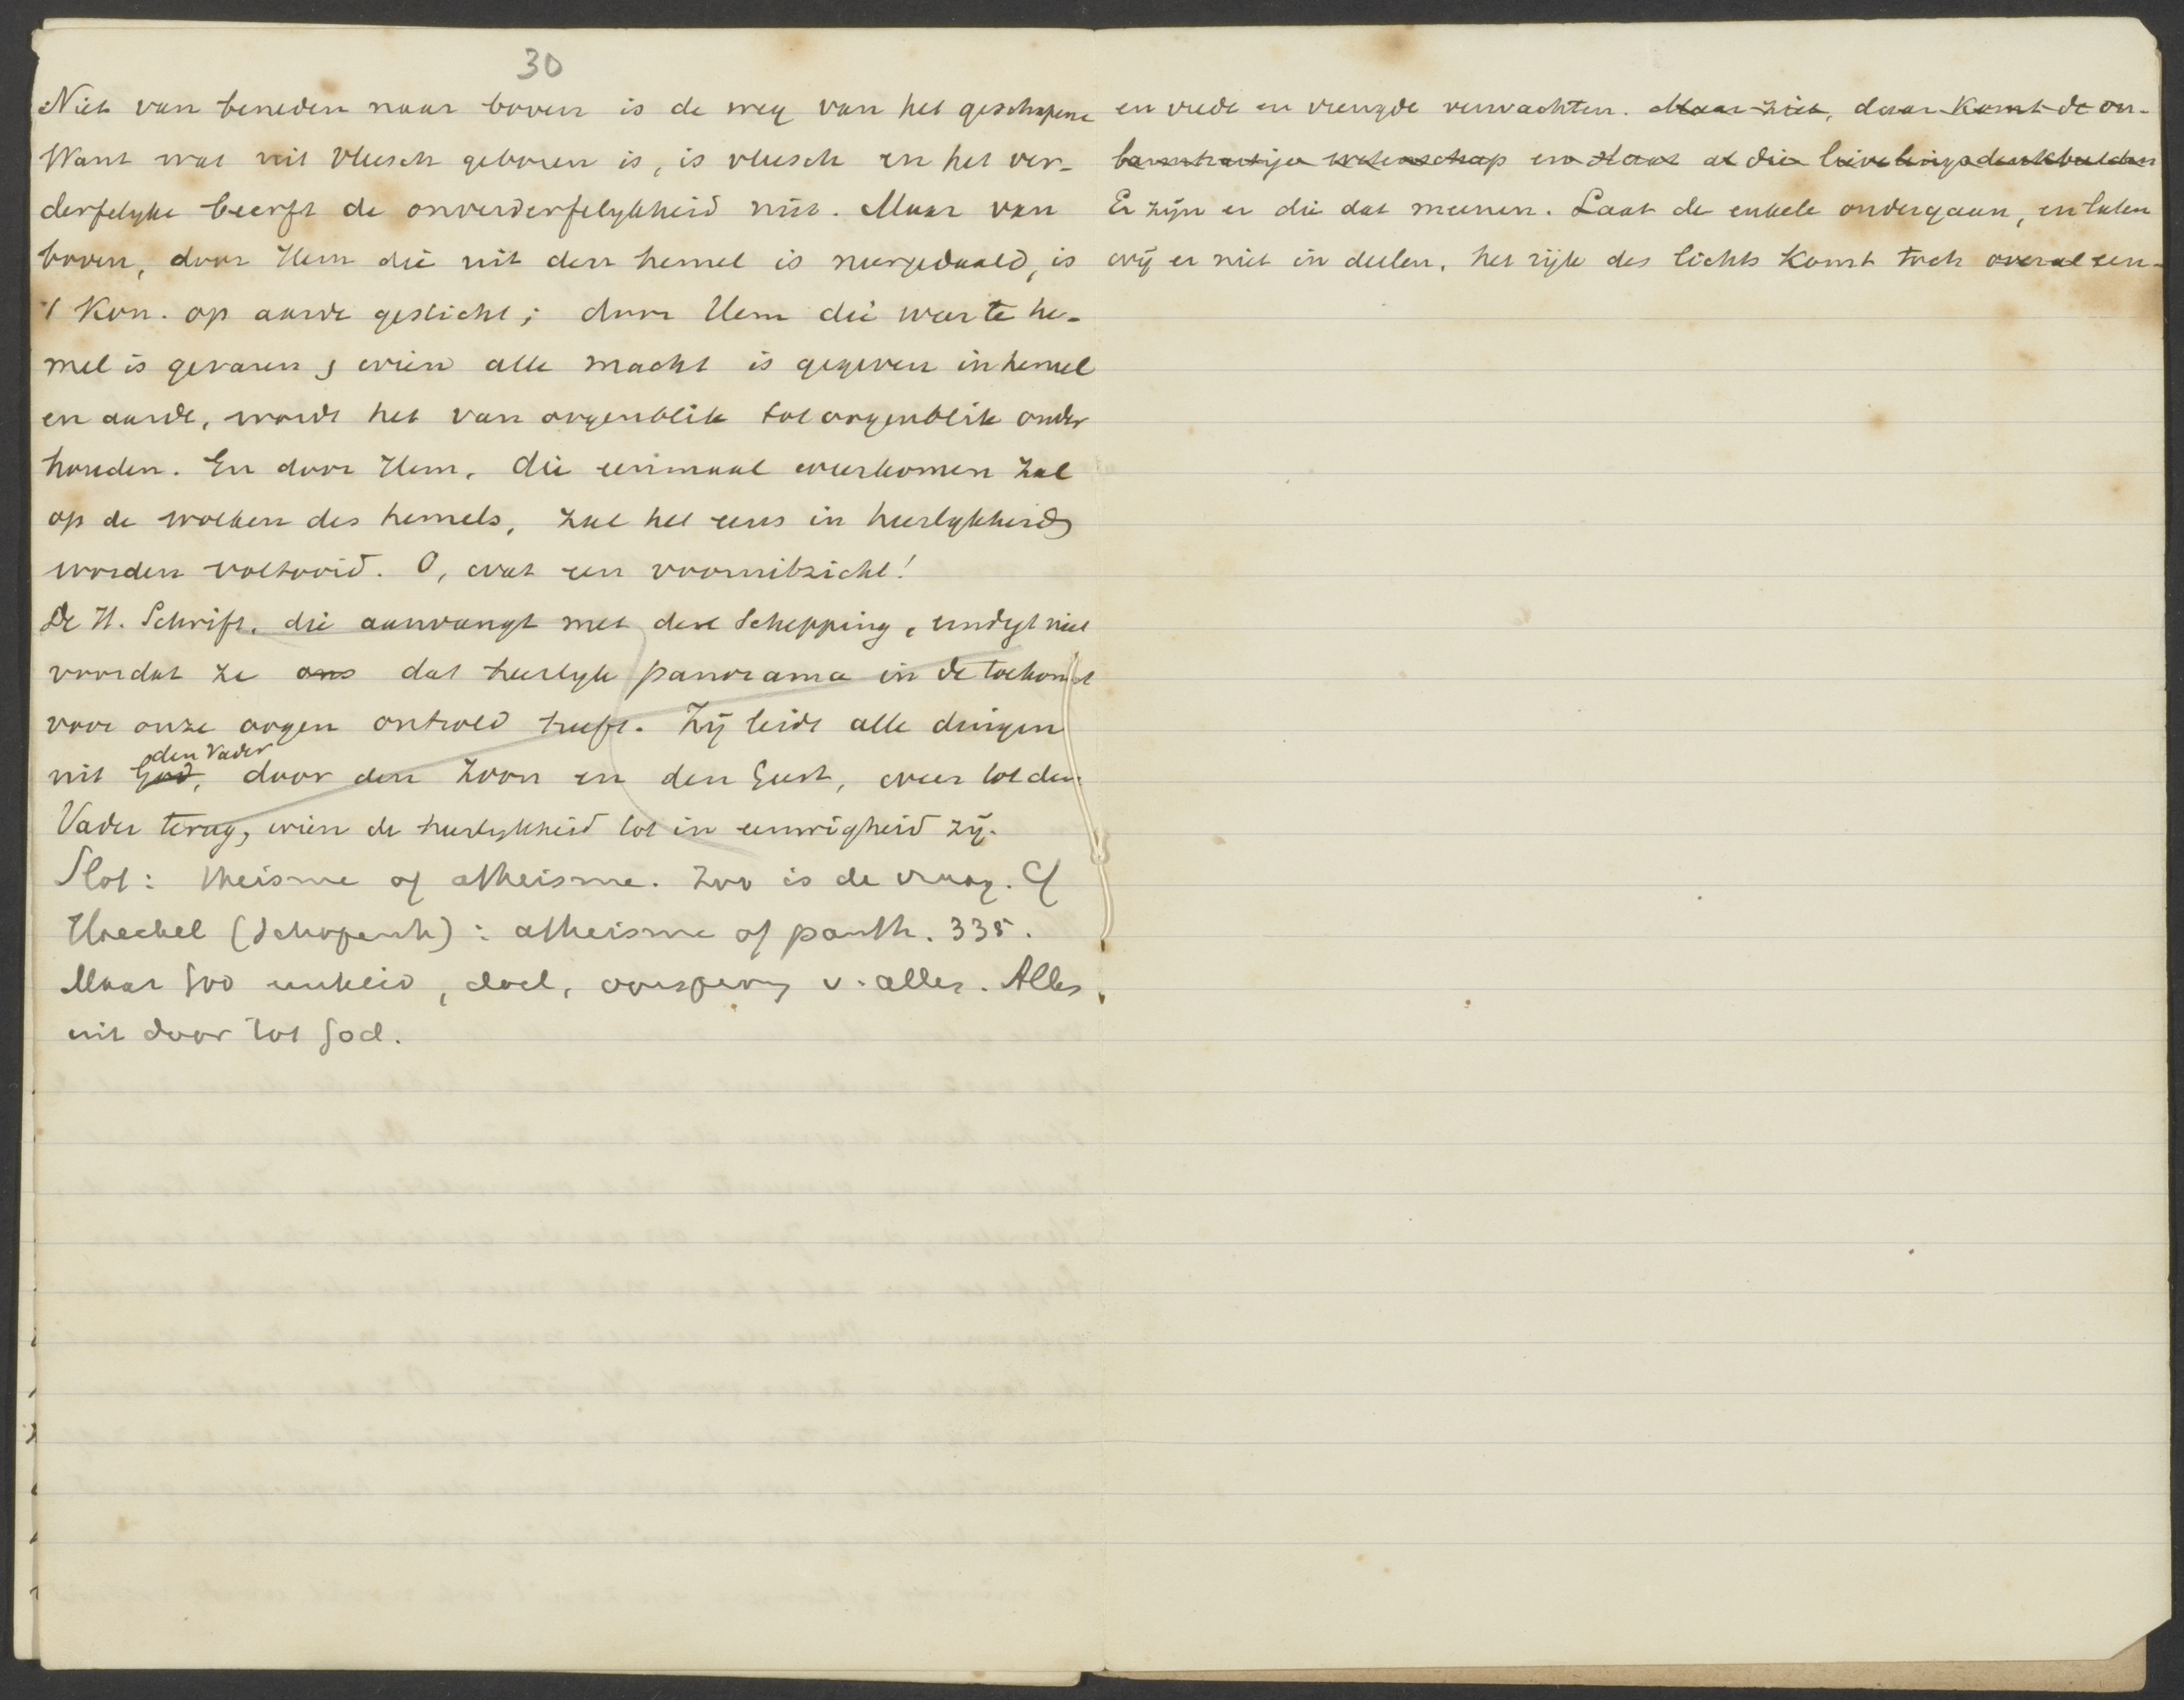 30
Niet van beneden naar boven is de weg van het geschapene
Want wat uit vleesch geboren is, is vleesch en het ver-
derfelyke beerft de onverderfelykheid niet. Maar van
boven, door Hem die uit den hemel is neergedaald, is
't Kon. op aarde gesticht; door Hem die weer te he-
mel is gevaren, wien alle macht is gegeven in hemel
en aarde, wordt het van oogenblik tot oogenblik onder
houden. En door Hem, die eenmaal weerkomen zal
op de wolken des hemels, zal het eens in heerlykheid
worden voltooid. O, wat een vooruitzicht!
De H. Schrift, die aanvangt met de Schepping, eindigt niet
voordat ze ons dat heerlyk panorama in de toekomst
voor onze oogen ontrold heeft. Zij leidt alle dingen
den Vader
uit God, door den Zoon en den Geest, weer tot den
Vader terug, wien de heerlykheid tot in eeuwigheid zij.
Slot: theisme of atheisme. Zoo is de vraag. Cf
Haeckel (Schopenh): atheisme of panth. 335.
Maar God eenheid, doel, oorsprong v. alles. Alles
uit door tot God.
en vrede en vreugde verwachten. Maar ziet, daar komt de on-
barmhartige wetenschap en slaat al die lievelingsdenkbeelden
Er zijn er die dat meenen. Laat de enkele ondergaan, en laten
wij er niet in deelen, het rijk des lichts komt toch overal een-